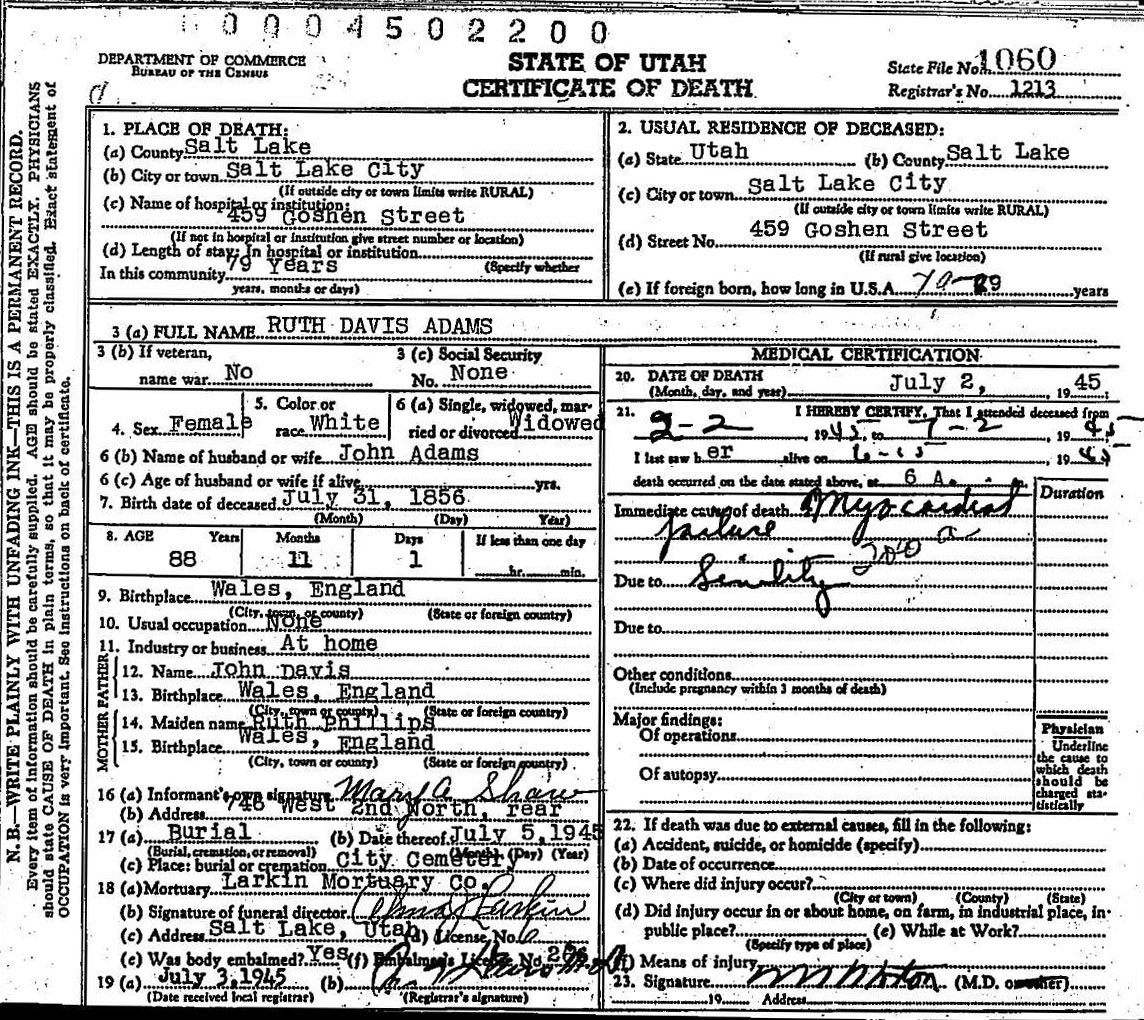 0004502200
DEPARTMENT OF COMMERCE
BUREAU OF THE CENSUS
STATE OF UTAH
CERTIFICATE OF DEATH
State File No. 1060
Registrar's No. 1213
N. B.—WRITE PLAINLY WITH UNFADING INK—THIS IS A PERMANENT RECORD.
Every item of information should be carefully supplied. AGE should be stated EXACTLY. PHYSICIANS
should state CAUSE OF DEATH in plain terms, so that it may be properly classified. Exact statement of
OCCUPATION is very important. See instructions on back of certificate.
1. PLACE OF DEATH:
(a) County Salt Lake
(b) City or town Salt Lake City
(If outside city or town limits write RURAL)
(c) Name of hospital or institution:
459 Goshen Street
(If not in hospital or institution give street number or location)
(d) Length of stay: In hospital or institution
In this community 79 Years (Specify whether
years, months or days)
2. USUAL RESIDENCE OF DECEASED:
(a) State Utah (b) County Salt Lake
(c) City or town Salt Lake City
(If outside city or town limits write RURAL)
(d) Street No. 459 Goshen Street
(If rural give location)
(e) If foreign born, how long in U.S.A. years
3 (a) FULL NAME RUTH DAVIS ADAMS
3 (b) If veteran, 3 (c) Social Security
name war No No. None
4. Sex Female 5. Color or race White 6 (a) Single, widowed, married or divorced Widowed
6 (b) Name of husband or wife John Adams
6 (c) Age of husband or wife if alive yrs.
7. Birth date of deceased July 31, 1856
(Month) (Day) Year)
8. AGE Years Months Days If less than one day
88 11 1 hr. min.
9. Birthplace Wales, England
(City, town, or county) (State or foreign country)
10. Usual occupation None
11. Industry or business At home
FATHER
12. Name John Davis
13. Birthplace Wales, England
(City, town or county) (State or foreign country)
MOTHER
14. Maiden name Ruth Phillips
15. Birthplace Wales, England
(City, town or county) (State or foreign country)
16 (a) Informant's own signature Mary A Shaw
(b) Address 746 West 2nd North, rear
17 (a) Burial (b) Date thereof July 5, 1945
(Burial, cremation, or removal) (Month) (Day) (Year)
(c) Place: burial or cremation City Cemetery
18 (a) Mortuary Larkin Mortuary Co.
(b) Signature of funeral director Larkin
(c) Address Salt Lake, Utah (d) License No. 6
(e) Was body embalmed? Yes (f) Embalmer's License No.
19 (a) July 3, 1945 (b)
(Date received local registrar) (Registrar's signature)
MEDICAL CERTIFICATION
20. DATE OF DEATH July 2, 1945
(Month, day, and year)
21. I HEREBY CERTIFY, That I attended deceased from
2-2, 1945 to 7-2, 1945
I last saw her alive on 6-15 1945
death occurred on the date stated above, at 6 A. m.
Duration
Immediate cause of death Myocardial
failure
Due to Senility
Due to
Other conditions
(Include pregnancy within 3 months of death)
Major findings:
Of operations
Of autopsy
Physician
Underline
the cause to
which death
should be
charged sta-
tistically
22. If death was due to external causes, fill in the following:
(a) Accident, suicide, or homicide (specify)
(b) Date of occurrence
(c) Where did injury occur?
(City or town) (County) (State)
(d) Did injury occur in or about home, on farm, in industrial place, in
public place? (e) While at Work?
(Specify type of place)
(f) Means of injury
23. Signature (M.D. or other)
19 Address